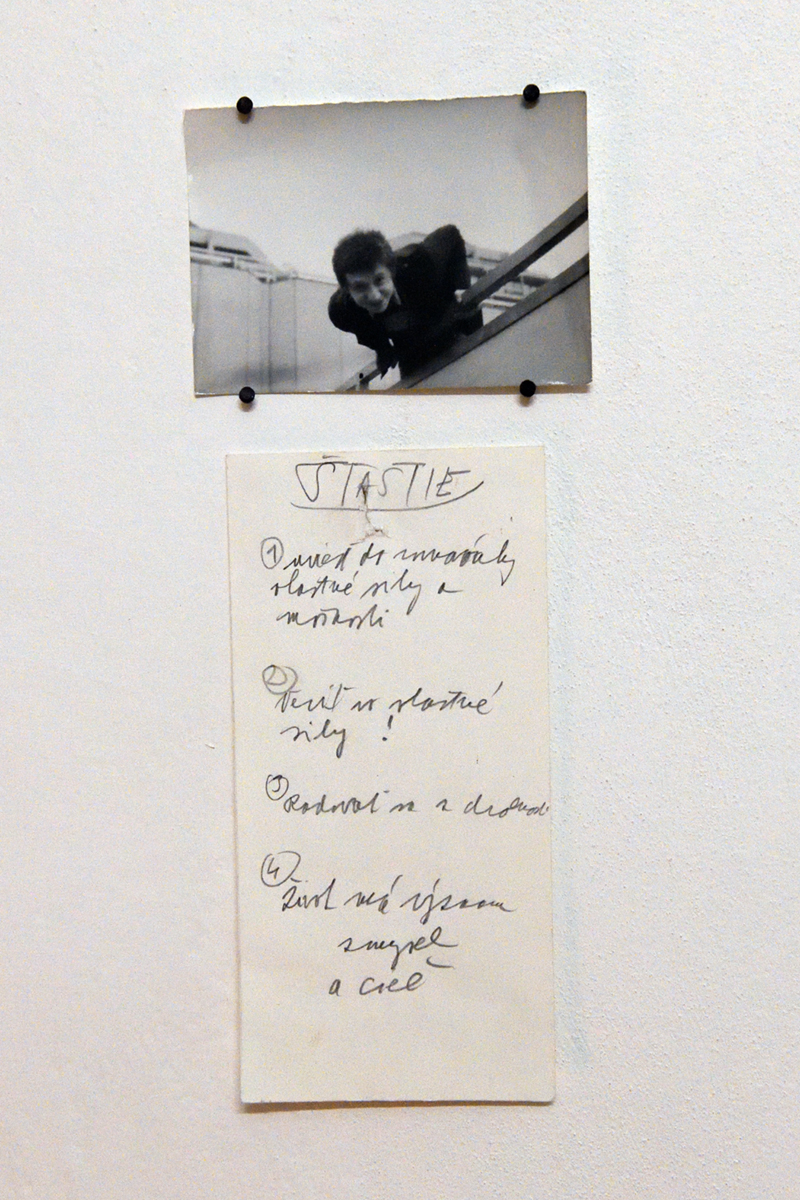 ŠTASTIE
① uviesť do rovnováhy
vlastné sily a
možnosti
②
Veriť vo vlastné
sily !
③ Radovať sa z drobností
④
Život má význam
zmysel
a cieľ